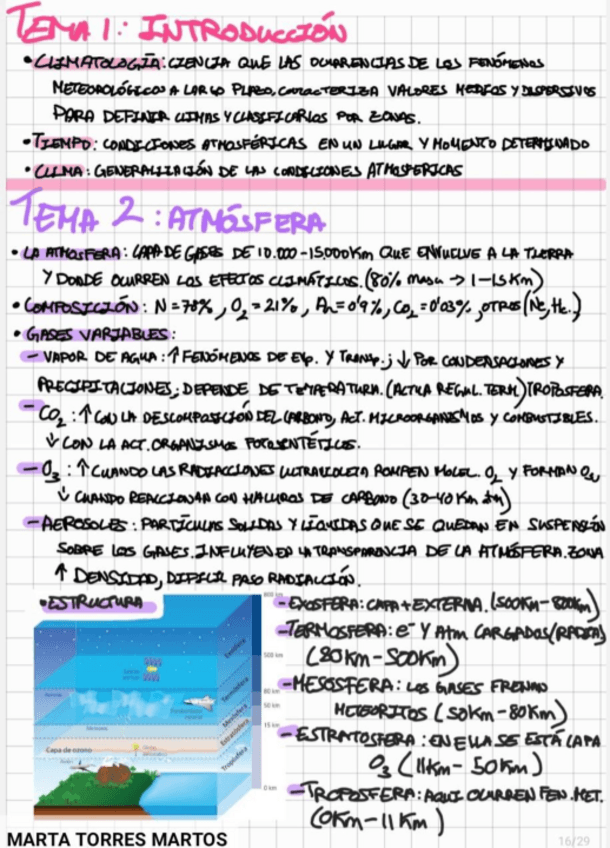 TEMA 1: INTRODUCCIÓN
• CLIMATOLOGÍA: CIENCIA QUE LAS OCURRENCIAS DE LOS FENÓMENOS
METEOROLÓGICOS A LARGO PLAZO, CARACTERIZA VALORES MEDIOS Y DISPERSIVOS
PARA DEFINIR CLIMAS Y CLASIFICARLOS POR ZONAS.
• TIEMPO: CONDICIONES ATMOSFÉRICAS EN UN LUGAR Y MOMENTO DETERMINADO
• CLIMA: GENERALIZACIÓN DE LAS CONDICIONES ATMOSFERICAS
TEMA 2: ATMÓSFERA
• LA ATMOSFERA: CAPA DE GASES DE 10.000-15.000Km QUE ENVUELVE A LA TIERRA
Y DONDE OCURREN LOS EFECTOS CLIMÁTICOS. (80% masa → 1-15Km)
• COMPOSICIÓN: N=78%, O2=21%, Ar=0'9%, CO2=0'03%, OTROS (Ne, He.)
• GASES VARIABLES:
- VAPOR DE AGUA: ↑ FENÓMENOS DE EVP. Y TRANSP.; ↓ POR CONDENSACIONES Y
PRECIPITACIONES; DEPENDE DE TEMPERATURA. (ACTUA REGUL. TERM.) TROPOSFERA.
- CO2: ↑ CON LA DESCOMPOSICIÓN DEL CARBONO, ACT. MICROORGANISMOS Y COMBUSTIBLES.
↓ CON LA ACT. ORGANISMOS FOTOSINTÉTICOS.
- O3: ↑ CUANDO LAS RADIACCIONES ULTRAVIOLETA ROMPEN MOLEC. O2 Y FORMAN
↓ CUANDO REACCIONAN CON HALUROS DE CARBONO (30-40 Km
- AEROSOLES: PARTÍCULAS SOLIDAS Y LÍQUIDAS QUE SE QUEDAN EN SUSPENSIÓN
SOBRE LOS GASES. INFLUYEN EN LA TRANSPARENCIA DE LA ATMÓSFERA. ZONA
↑ DENSIDAD, DIFICIL PASO RADIACCIÓN.
• ESTRUCTURA
- EXOSFERA: CAPA + EXTERNA. (500Km-800Km)
- TERMOSFERA: e⁻ Y ATM CARGADOS
(80Km-500Km)
- MESOSFERA: LOS GASES FRENAN
METEORITOS (50Km-80Km)
- ESTRATOSFERA: EN ELLA SE ESTÁ CAPA
O3 (11Km-50Km)
- TROPOSFERA: AQUI OCURREN FEN. MET.
(0Km-11Km)
500 km
Exosfera
Termosfera
80 km
50 km
Mesosfera
15 km
Estratosfera
Capa de ozono
Troposfera
0 km
MARTA TORRES MARTOS
16/29